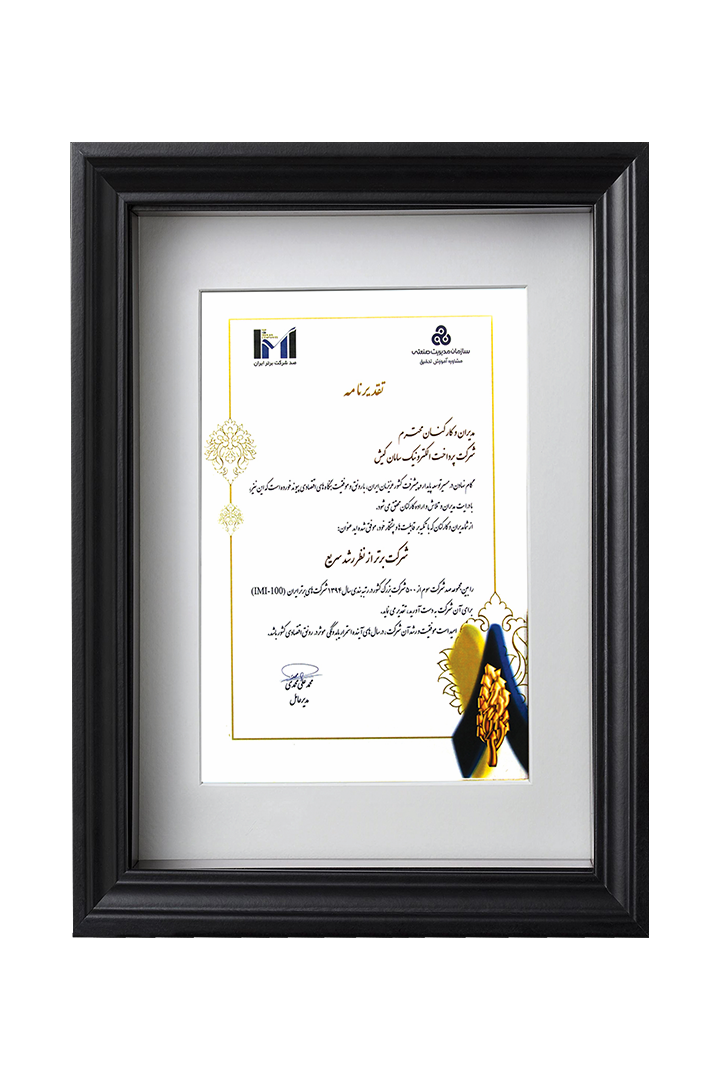 سازمان مدیریت صنعتی
مشاوره آموزش تحقیق
IMI
صد شرکت برتر ایران
تقدیرنامه
مدیران و کارکنان محترم
شرکت پرداخت الکترونیک سامان کیش
گام نهادن در مسیر توسعه پایدار و پیشرفت کشور عزیزمان ایران، با رونق و موفقیت بنگاه های اقتصادی پیوند خورده است که این نیز
با درایت مدیران و تلاش و اراده کارکنان محقق می شود.
از شما مدیران و کارکنان که با تکیه بر قابلیت ها و پشتکار خود، موفق شده اید عنوان:
شرکت برتر از نظر رشد سریع
را بین مجموعه صد شرکت سوم از ۵۰۰ شرکت بزرگ کشور در رتبه بندی سال ۱۳۹۴ شرکت های برتر ایران (IMI-100)
برای آن شرکت به دست آورید، تقدیر می نماید.
امید است موفقیت و رشد آن شرکت، در سال های آینده استمرار یابد و نقش موثر در رونق اقتصادی کشور باشد.
محمد علی محمدی
مدیرعامل